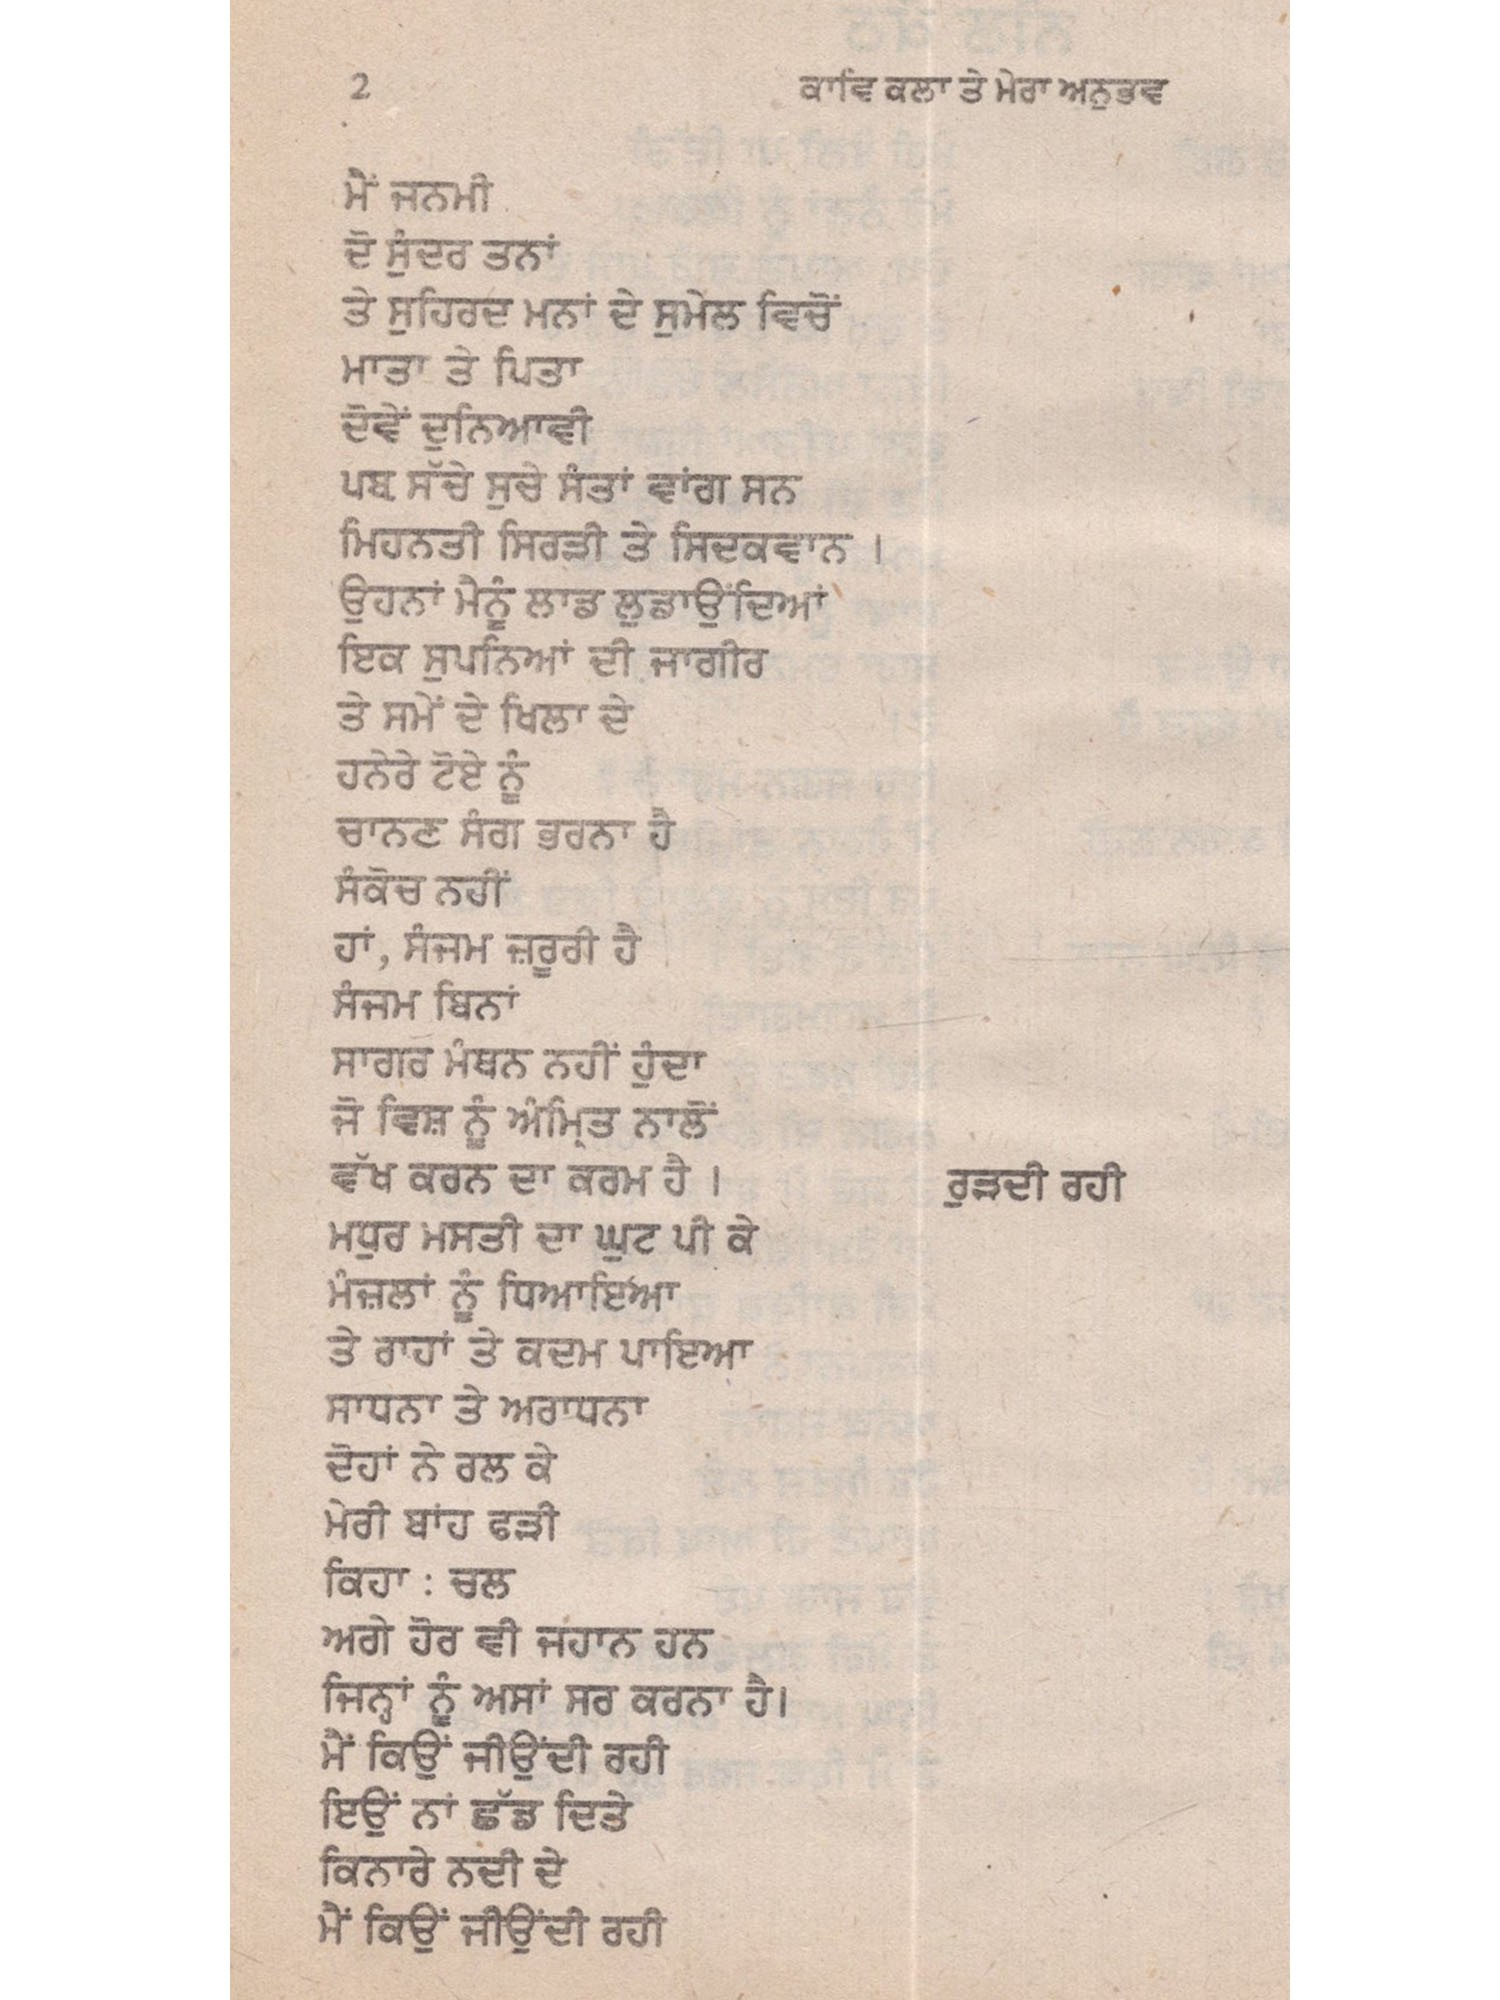 2 ਕਾਵਿ ਕਲਾ ਤੇ ਮੇਰਾ ਅਨੁਭਵ
ਮੈਂ ਜਨਮੀ
ਦੋ ਸੁੰਦਰ ਤਨਾਂ
ਤੇ ਸੁਹਿਰਦ ਮਨਾਂ ਦੇ ਸੁਮੇਲ ਵਿਚੋਂ
ਮਾਤਾ ਤੇ ਪਿਤਾ
ਦੋਵੇਂ ਦੁਨਿਆਵੀ
ਪਬ ਸੱਚੇ ਸੁਚੇ ਸੰਤਾਂ ਵਾਂਗ ਸਨ
ਮਿਹਨਤੀ ਸਿਰੜੀ ਤੇ ਸਿਦਕਵਾਨ ।
ਉਹਨਾਂ ਮੈਨੂੰ ਲਾਡ ਲੁਡਾਉਂਦਿਆਂ
ਇਕ ਸੁਪਨਿਆਂ ਦੀ ਜਾਗੀਰ
ਤੇ ਸਮੇਂ ਦੇ ਖਿਲਾ ਦੇ
ਹਨੇਰੇ ਟੋਏ ਨੂੰ
ਚਾਨਣ ਸੰਗ ਭਰਨਾ ਹੈ
ਸੰਕੋਚ ਨਹੀਂ
ਹਾਂ, ਸੰਜਮ ਜ਼ਰੂਰੀ ਹੈ
ਸੰਜਮ ਬਿਨਾਂ
ਸਾਗਰ ਮੰਥਨ ਨਹੀਂ ਹੁੰਦਾ
ਜੋ ਵਿਸ਼ ਨੂੰ ਅੰਮ੍ਰਿਤ ਨਾਲੋਂ
ਵੱਖ ਕਰਨ ਦਾ ਕਰਮ ਹੈ । ਰੁੜਦੀ ਰਹੀ
ਮਧੁਰ ਮਸਤੀ ਦਾ ਘੁਟ ਪੀ ਕੇ
ਮੰਜ਼ਲਾਂ ਨੂੰ ਧਿਆਇਆ
ਤੇ ਰਾਹਾਂ ਤੇ ਕਦਮ ਪਾਇਆ
ਸਾਧਨਾ ਤੇ ਅਰਾਧਨਾ
ਦੋਹਾਂ ਨੇ ਰਲ ਕੇ
ਮੇਰੀ ਬਾਂਹ ਫੜੀ
ਕਿਹਾ : ਚਲ
ਅਗੇ ਹੋਰ ਵੀ ਜਹਾਨ ਹਨ
ਜਿਨ੍ਹਾਂ ਨੂੰ ਅਸਾਂ ਸਰ ਕਰਨਾ ਹੈ।
ਮੈਂ ਕਿਉਂ ਜੀਉਂਦੀ ਰਹੀ
ਇਉਂ ਨਾਂ ਛੱਡ ਦਿਤੇ
ਕਿਨਾਰੇ ਨਦੀ ਦੇ
ਮੈਂ ਕਿਉਂ ਜੀਉਂਦੀ ਰਹੀ